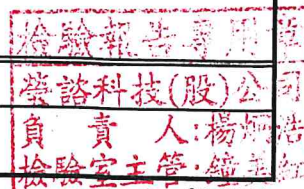 檢驗報告專用章
瑩諮科技(股)公司
負責人:楊
檢驗室主管:鐘美